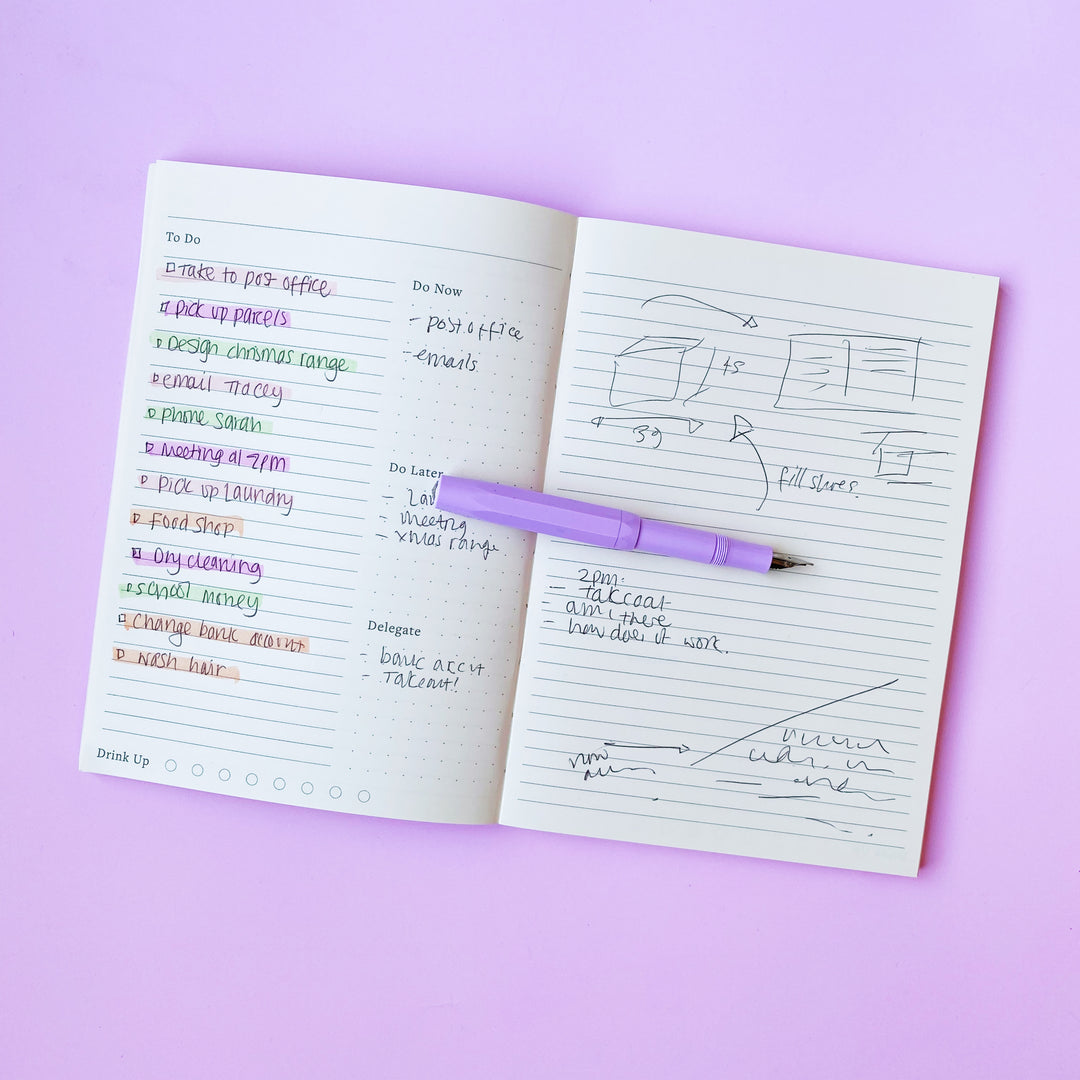 To Do
Take to post office
Pick up parcels
Design chrismas range
email Tracey
phone Sarah
Meeting at 2pm
Pick up Laundry
Food shop
Dry cleaning
school money
Change bank account
wash hair
Drink Up
Do Now
- post office
- emails
Do Later
- meeting
- xmas range
Delegate
- bank accnt
- Takeout!
45
39
2pm:
am i there
- how does it work.